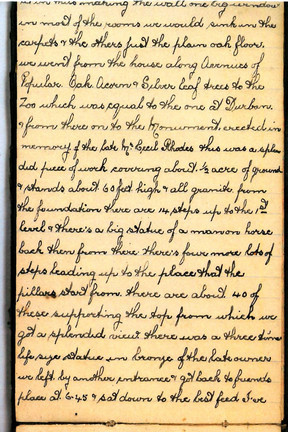 this making the wall one big window
in most of the rooms we would sink in the
carpets & the others just the plain oak floor.
we went from the house along Avenues of
Popular. Oak. Acorn & Silver leaf trees to the
Zoo which was equal to the one at Durban.
& from there on to the Monument, erected in
memory of the late Mr Cecil Rhodes this was a splen
did piece of work covering about ½ acre of ground
& stands about 60 feet high & all granite from
the foundation there are 14 steps up to the 1st
level & there's a big statue of a man on horse
back then from there there's four more lots of
steps leading up to the place that the
pillars start from. there are about 40 of
these supporting the top from which we
got a splendid view there was a three time
life size statue in bronze of the late owner
we left by another entrance & got back to friends
place at 6.45 & sat down to the best feed I've